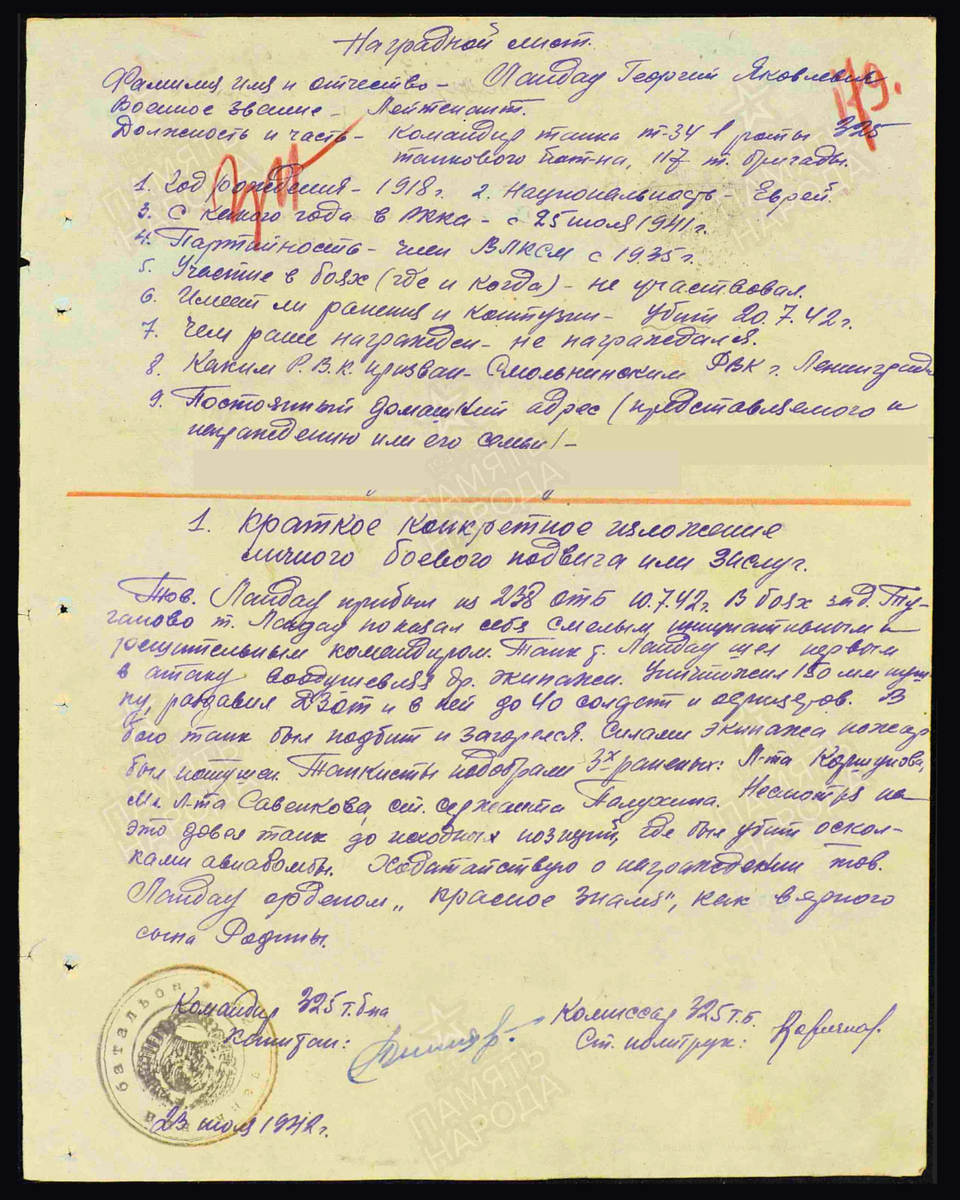 Наградной лист.
Фамилия имя и отчество — Ландау Георгий Яковлевич
Военное звание — Лейтенант.
Должность и часть — Командир танка т-34 1 роты 325
танкового бат-на, 117 т. бригады.
1. Год рождения — 1918 г. 2. Национальность — Еврей.
3. С какого года в РККА — с 25 июля 1941 г.
4. Партийность — член ВЛКСМ с 1935 г.
5. Участие в боях (где и когда) — не участвовал.
6. Имеет ли ранения и контузии — Убит 20.7.42 г.
7. Чем ранее награжден — не награждался.
8. Каким Р.В.К. призван — Смольнинским РВК г. Ленинграда
9. Постоянный домашний адрес (представляемого к
награждению или его семьи) —
1. Краткое конкретное изложение
личного боевого подвига или заслуг.
Тов. Ландау прибыл из 238 ОТБ 10.7.42 г. В боях за д. Ту-
ганово т. Ландау показал себя смелым, инициативным и
решительным командиром. Танк т. Ландау шел первым
в атаку воодушевляя др. экипажи. Уничтожил 150 мм пуш-
ку, раздавил ДЗОТ и в ней до 40 солдат и офицеров. В
бою танк был подбит и загорелся. Силами экипажа пожар
был потушен. Танкисты подобрали 3х раненых: Л-та Коршунова,
Мл. Л-та Савенкова, ст. сержанта Палухина. Несмотря на
это довел танк до исходных позиций, где был убит оскол-
ками авиабомбы. Ходатайствую о награждении тов.
Ландау орденом „Красное знамя", как верного
сына Родины.
Командир 325 т. б-на Комиссар 325 т.б.
Капитан: Ст. политрук:
23 июля 1942 г.
батальон
ПАМЯТЬ
НАРОДА